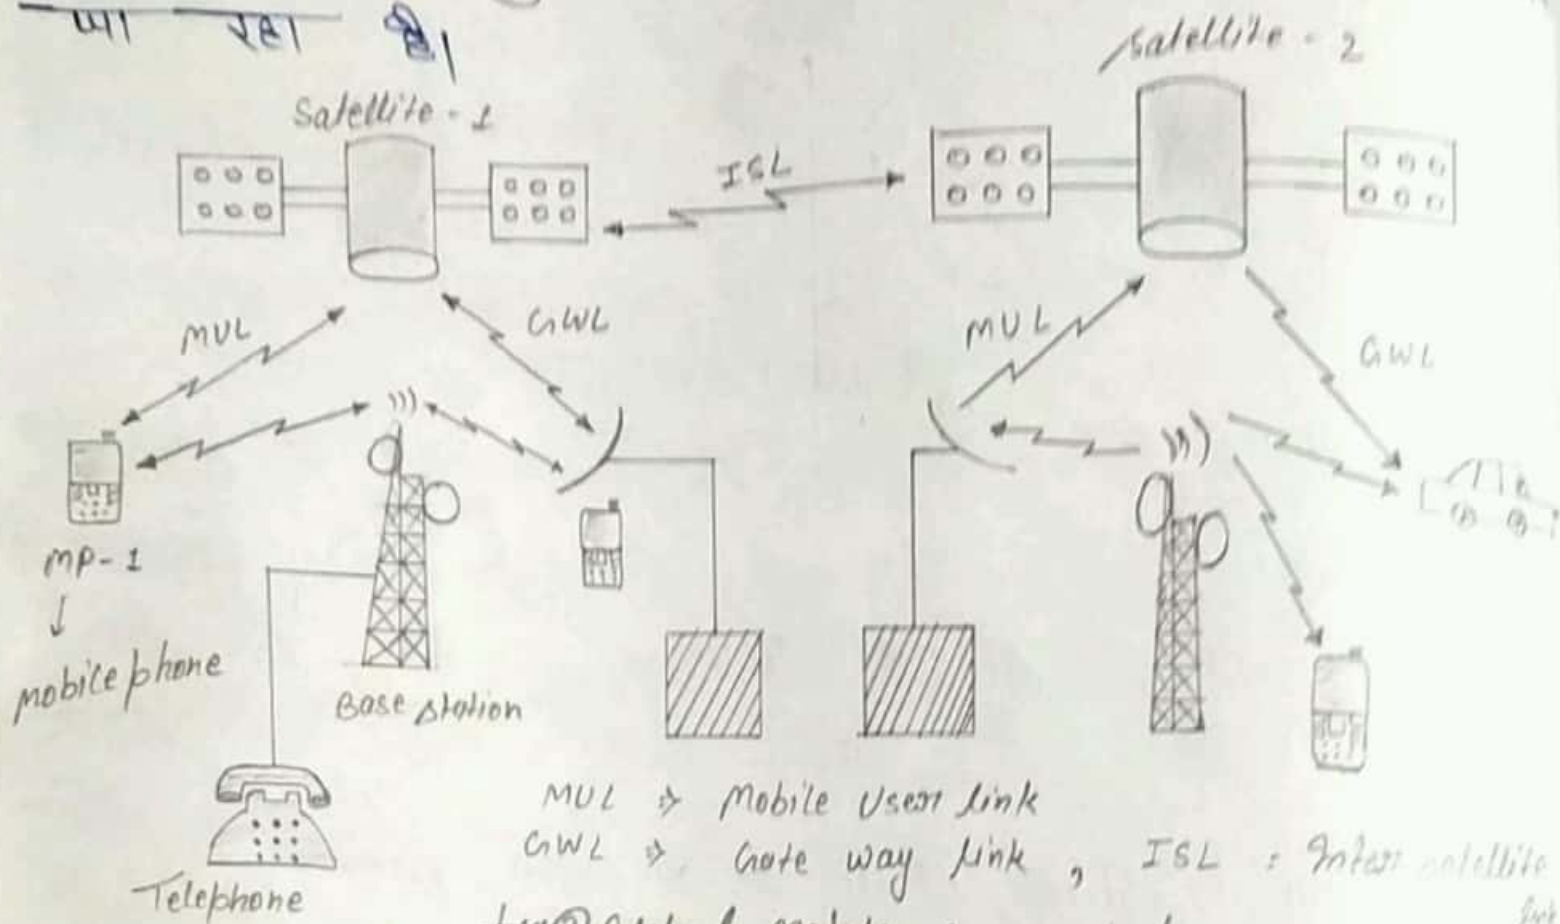 रहा है।
Satellite - 1
Satellite - 2
ISL
MUL
GWL
MUL
GWL
MP-1
↓
mobile phone
Base station
Telephone
MUL ⇒ Mobile User link
GWL ⇒ Gate way link , ISL : Inter satellite
link